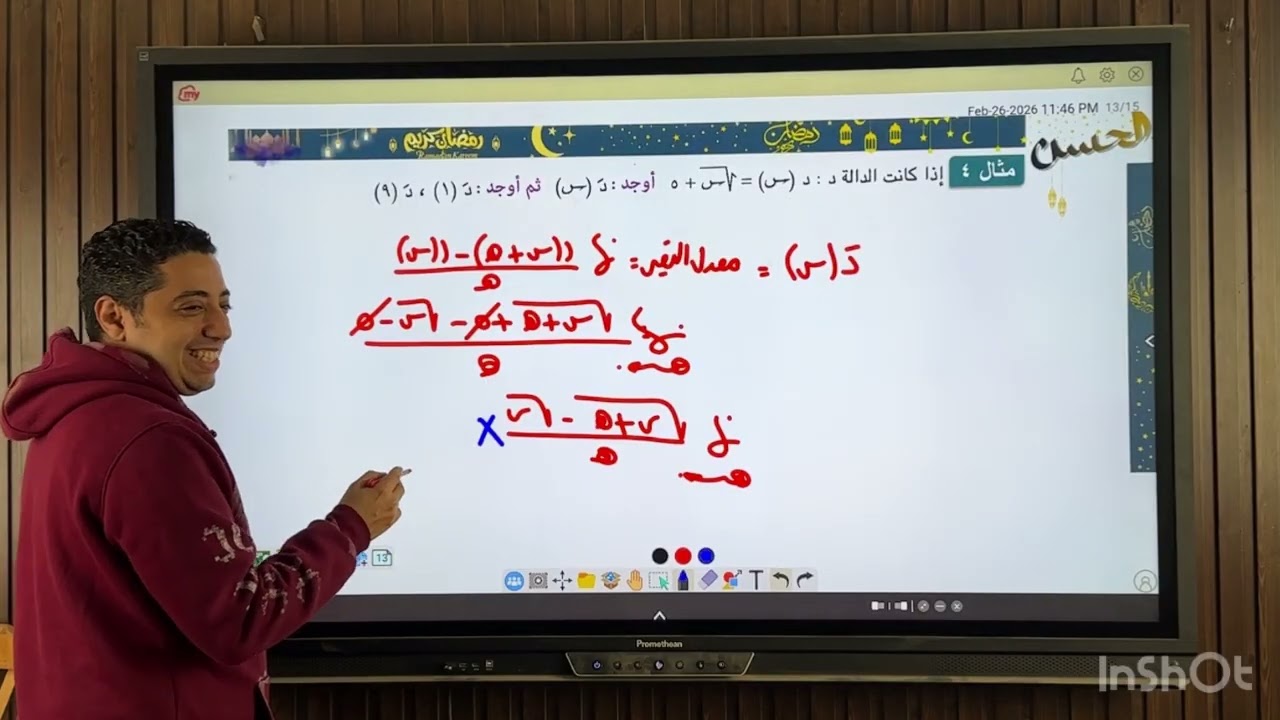 my
Feb-26-2026 11:46 PM 13/15
رمضان كريم
Ramadan Kareem
رمضان
الحسن
مثال ٤ إذا كانت الدالة د : د (س) = √س + ٥ أوجد : دَ (س) ثم أوجد : دَ (١) ، دَ (٩)
دَ (س) = معدل التغير = نها (د(س+هـ) - د(س)) / هـ
نها هـ←٠ (√س+هـ + ٥ - √س - ٥) / هـ
نها هـ←٠ (√س+هـ - √س) / هـ ×
13
T
Promethean
InShOt